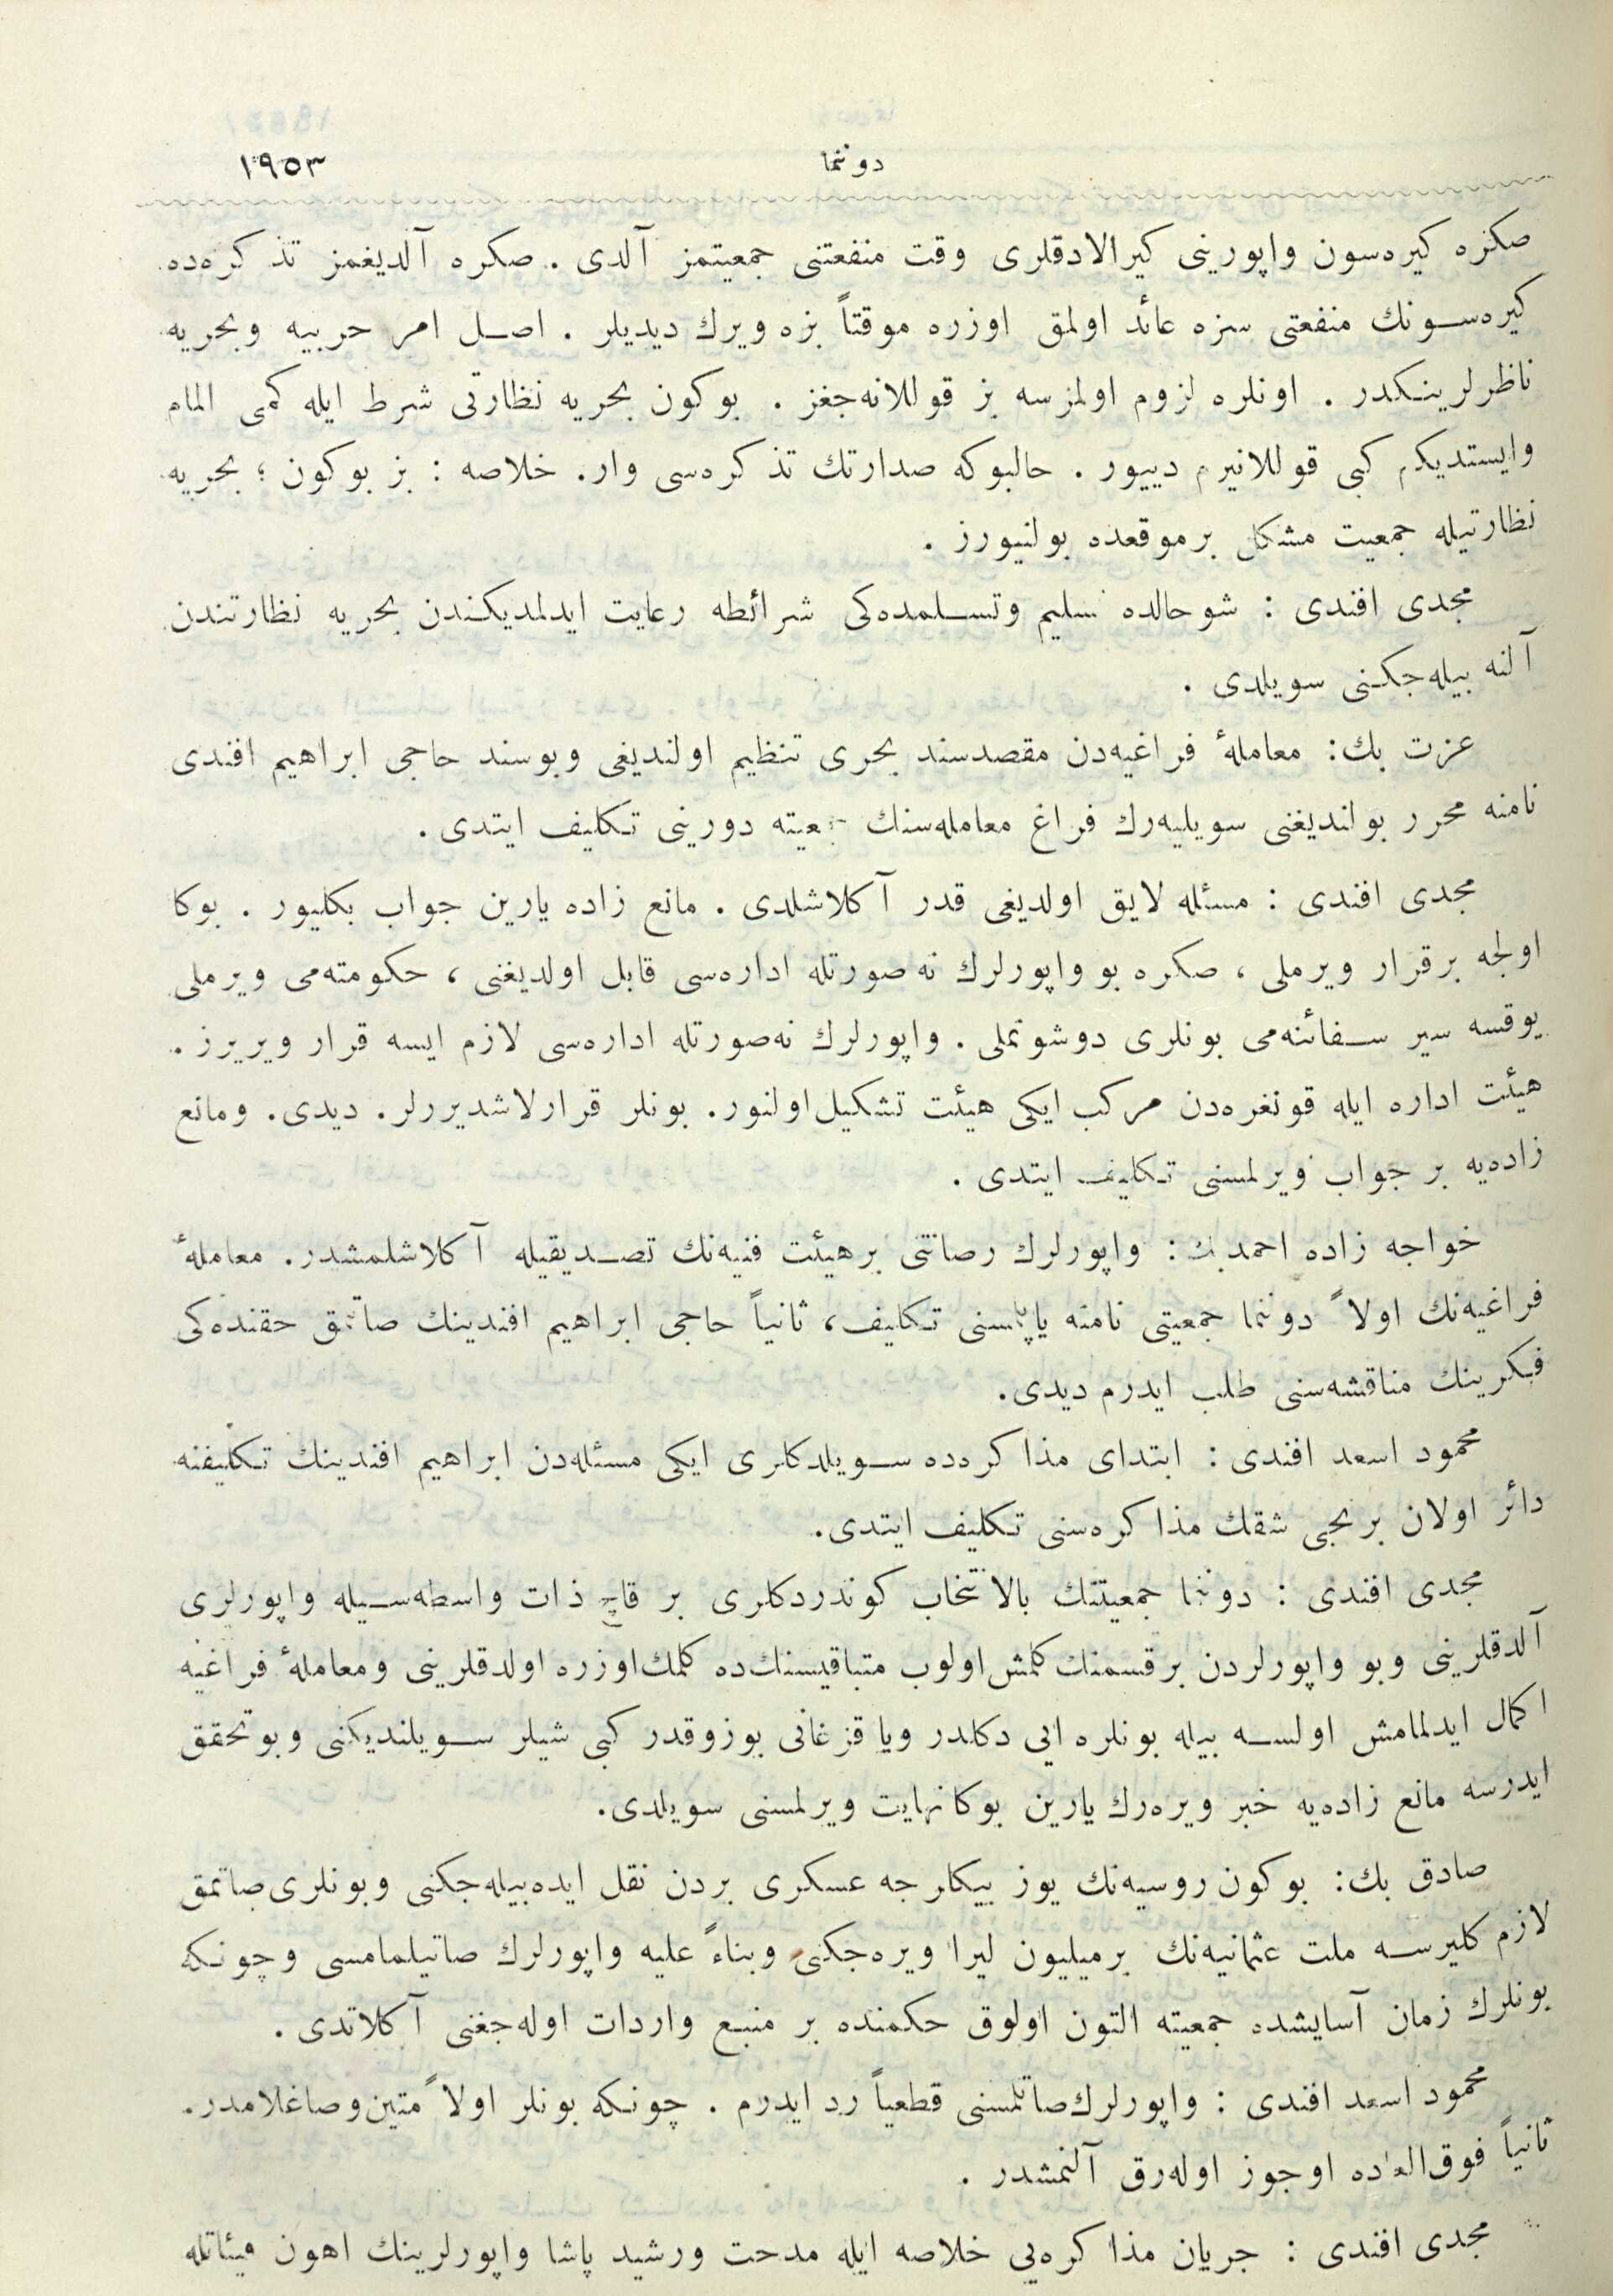 دونما
١٩٥٣
صكزه كيره‌سون واپورينى كيرالادقلرى وقت منفعتنى جمعيتمز آلدى . صكره آلديغمز تذكره‌ده
كيره‌سونك منفعتى سزه عائد اولمق اوزره موقتاً بزه ويرك ديديلر . اصل امر حربيه وبحريه
ناظرلرينكدر . اونلره لزوم اولمزسه بز قوللانه‌جغز . بوكون بحريه نظارتى شرط ايله كمى المام
وايستديكم كبى قوللانيرم دييور . حالبوكه صدارتك تذكره‌سى وار. خلاصه : بز بوكون ؛ بحريه
نظارتيله جمعيت مشكل برموقعده بولنيورز .
مجدى افندى : شو حالده تسليم وتسلمده‌كى شرائطه رعايت ايدلمديكندن بحريه نظارتندن
آلنه بيله‌جكنى سويلدى .
عزت بك: معاملهٔ فراغيه‌دن مقصدسند بحرى تنظيم اولنديغى وبوسند حاجى ابراهيم افندى
نامنه محرر بولنديغنى سويليه‌رك فراغ معامله‌سنك جمعيته دورينى تكليف ايتدى .
مجدى افندى : مسئله لايق اولديغى قدر آكلاشلدى . مانع زاده يارين جواب بكليور . بوكا
اولجه برقرار ويرملى ، صكره بو واپورلرك نه صورتله اداره‌سى قابل اولديغنى ، حكومته‌مى ويرملى
يوقسه سير سفائنه‌مى بونلرى دوشونملى . واپورلرك نه‌صورتله اداره‌سى لازم ايسه قرار ويريرز .
هيئت اداره ايله قونغره‌دن مركب ايكى هيئت تشكيل‌اولنور. بونلر قرارلاشديررلر. ديدى. ومانع
زاده‌يه بر جواب ويرلمسنى تكليف ايتدى .
خواجه زاده احمدبك : واپورلرك رصانتى برهيئت فنيه‌نك تصديقيله آكلاشلمشدر. معاملهٔ
فراغيه‌نك اولاً دونما جمعيتى نامنه ياپلمسنى تكليف، ثانياً حاجى ابراهيم افندينك صاتمق حقنده‌كى
فكرينك مناقشه‌سنى طلب ايدرم ديدى.
محمود اسعد افندى : ابتداى مذاكره‌ده سويلدكلرى ايكى مسئله‌دن ابراهيم افندينك تكليفنه
دائر اولان برنجى شقك مذاكره‌سنى تكليف ايتدى.
مجدى افندى : دونما جمعيتنك بالانتخاب كوندردكلرى بر قاچ ذات واسطه‌سيله واپورلرى
آلدقلرينى وبو واپورلردن برقسمنك كلمش‌اولوب متباقيسنك‌ده كلمك‌اوزره اولدقلرينى ومعاملهٔ فراغيه
اكمال ايدلمامش اولسه بيله بونلره ايى دكلدر ويا قزغانى بوزوقدر كبى شيلر سويلنديكنى وبوتحقق
ايدرسه مانع زاده‌يه خبر ويره‌رك يارين بوكا نهايت ويرلمسنى سويلدى.
صادق بك: بوكون روسيه‌نك يوز بيكلرجه عسكرى بردن نقل ايده‌بيله‌جكنى وبونلرى‌صاتمق
لازم كليرسه ملت عثمانيه‌نك برميليون ليرا ويره‌جكنى وبناءً عليه واپورلرك صاتيلمامسى وچونكه
بونلرك زمان آسايشده جمعيته التون اولوق حكمنده بر منبع واردات اوله‌جغنى آكلاتدى .
محمود اسعد افندى : واپورلرك‌صاتلمسنى قطعياً رد ايدرم . چونكه بونلر اولاً متين‌وصاغلامدر.
ثانياً فوق‌العاده اوجوز اوله‌رق آلنمشدر .
مجدى افندى : جريان مذاكره‌يى خلاصه ايله مدحت ورشيد پاشا واپورلرينك اهون فيئاتله